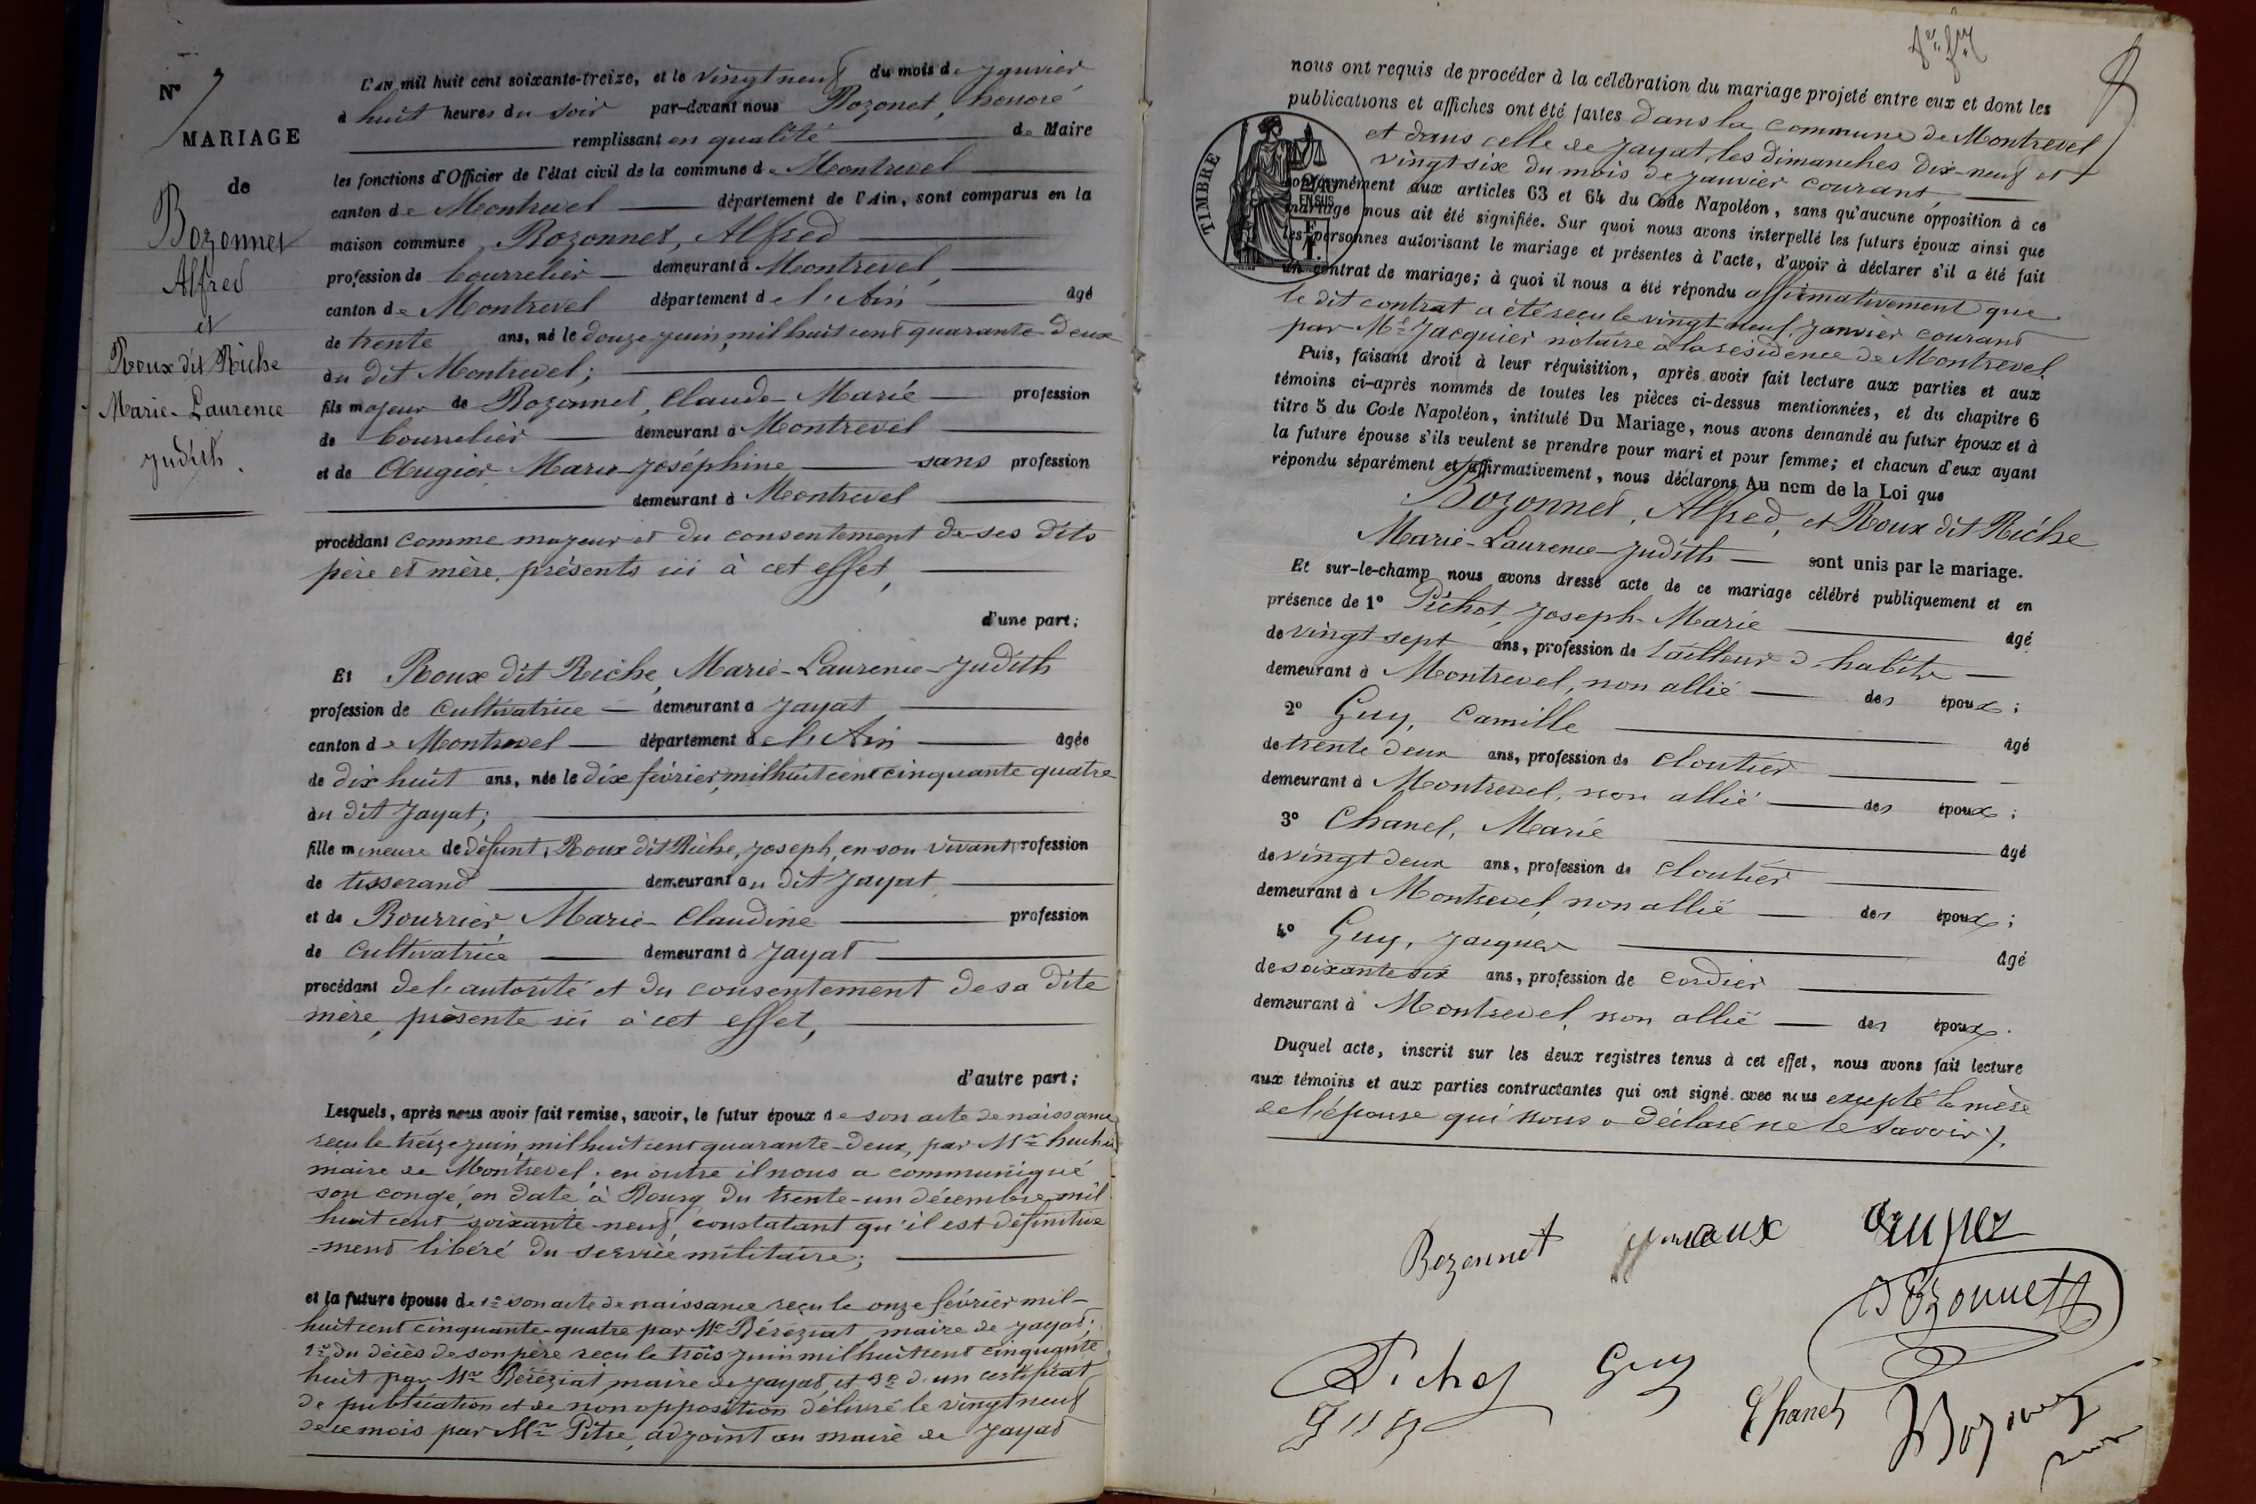 N° 7
MARIAGE
de
Bozonnet
Alfred
et
Roux dit Riche
Marie-Laurence
Judith.
L'AN mil huit cent soixante-treize, et le vingt neuf du mois de Janvier
à huit heures du soir par-devant nous Bozonet, honoré
remplissant en qualité de Maire
les fonctions d'Officier de l'état civil de la commune de Montrevel
canton de Montrevel département de l'Ain, sont comparus en la
maison commune, Bozonnet, Alfred
profession de bourrelier demeurant à Montrevel,
canton de Montrevel département de l'Ain âgé
de trente ans, né le douze juin, mil huit cent quarante-deux
au dit Montrevel;
fils majeur de Bozonnet, Claude-Marie profession
de bourrelier demeurant à Montrevel
et de Augier, Marie-Joséphine sans profession
demeurant à Montrevel
procédant comme majeur et du consentement de ses dits
père et mère, présents ici à cet effet,
d'une part;
Et Roux dit Riche, Marie-Laurence-Judith
profession de cultivatrice demeurant à Jayat
canton de Montrevel département de l'Ain âgée
de dix huit ans, née le dix février, mil huit cent cinquante quatre
au dit Jayat;
fille mineure de défunt, Roux dit Riche, Joseph, en son vivant profession
de tisserand demeurant au dit Jayat
et de Bourrier, Marie-Claudine profession
de cultivatrice demeurant à Jayat
procédant de l'autorité et du consentement de sa dite
mère, présente ici à cet effet,
d'autre part;
Lesquels, après nous avoir fait remise, savoir, le futur époux de son acte de naissance
reçu le treize juin, mil huit cent quarante-deux, par Mr
maire de Montrevel; en outre il nous a communiqué
son congé, en date à Bourg du trente-un décembre mil
huit cent soixante-neuf, constatant qu'il est définitive
-ment libéré du service militaire;
et la future épouse de 1° son acte de naissance reçu le onze février mil-
huit cent cinquante-quatre par Mr Béréziat, maire de Jayat;
2° du décès de son père reçu le trois juin mil huit cent cinquante
huit par Mr Béréziat, maire de Jayat, et 3° d'un certificat
de publication et de non opposition délivré le vingt neuf
de ce mois par Mr Pitre, adjoint au maire de Jayat
nous ont requis de procéder à la célébration du mariage projeté entre eux et dont les
publications et affiches ont été faites dans la commune de Montrevel
et dans celle de Jayat, les dimanches dix-neuf et
vingt six du mois de janvier courant,
conformément aux articles 63 et 64 du Code Napoléon, sans qu'aucune opposition à ce
mariage nous ait été signifiée. Sur quoi nous avons interpellé les futurs époux ainsi que
les personnes autorisant le mariage et présentes à l'acte, d'avoir à déclarer s'il a été fait
un contrat de mariage; à quoi il nous a été répondu affirmativement que
le dit contrat a été reçu le vingt neuf, janvier courant
par Me Jacquier notaire à la résidence de Montrevel.
Puis, faisant droit à leur réquisition, après avoir fait lecture aux parties et aux
témoins ci-après nommés de toutes les pièces ci-dessus mentionnées, et du chapitre 6
titre 5 du Code Napoléon, intitulé Du Mariage, nous avons demandé au futur époux et à
la future épouse s'ils veulent se prendre pour mari et pour femme; et chacun d'eux ayant
répondu séparément et affirmativement, nous déclarons Au nom de la Loi que
Bozonnet, Alfred, et Roux dit Riche
Marie-Laurence-Judith sont unis par le mariage.
Et sur-le-champ nous avons dressé acte de ce mariage célébré publiquement et en
présence de 1° Pichot, Joseph-Marie âgé
de vingt sept ans, profession de tailleur d'habits
demeurant à Montrevel, non allié des époux;
2° Guy, Camille âgé
de trente deux ans, profession de cloutier
demeurant à Montrevel, non allié des époux;
3° Chanel, Marie âgé
de vingt deux ans, profession de cloutier
demeurant à Montrevel, non allié des époux;
4° Guy, Jacques âgé
de soixante six ans, profession de cordier
demeurant à Montrevel, non allié des époux.
Duquel acte, inscrit sur les deux registres tenus à cet effet, nous avons fait lecture
aux témoins et aux parties contractantes qui ont signé avec nous excepté la mère
de l'épouse qui nous a déclaré ne le savoir).
TIMBRE
Bozonnet
Bozonnet
Pichot Guy
Guy Chanel